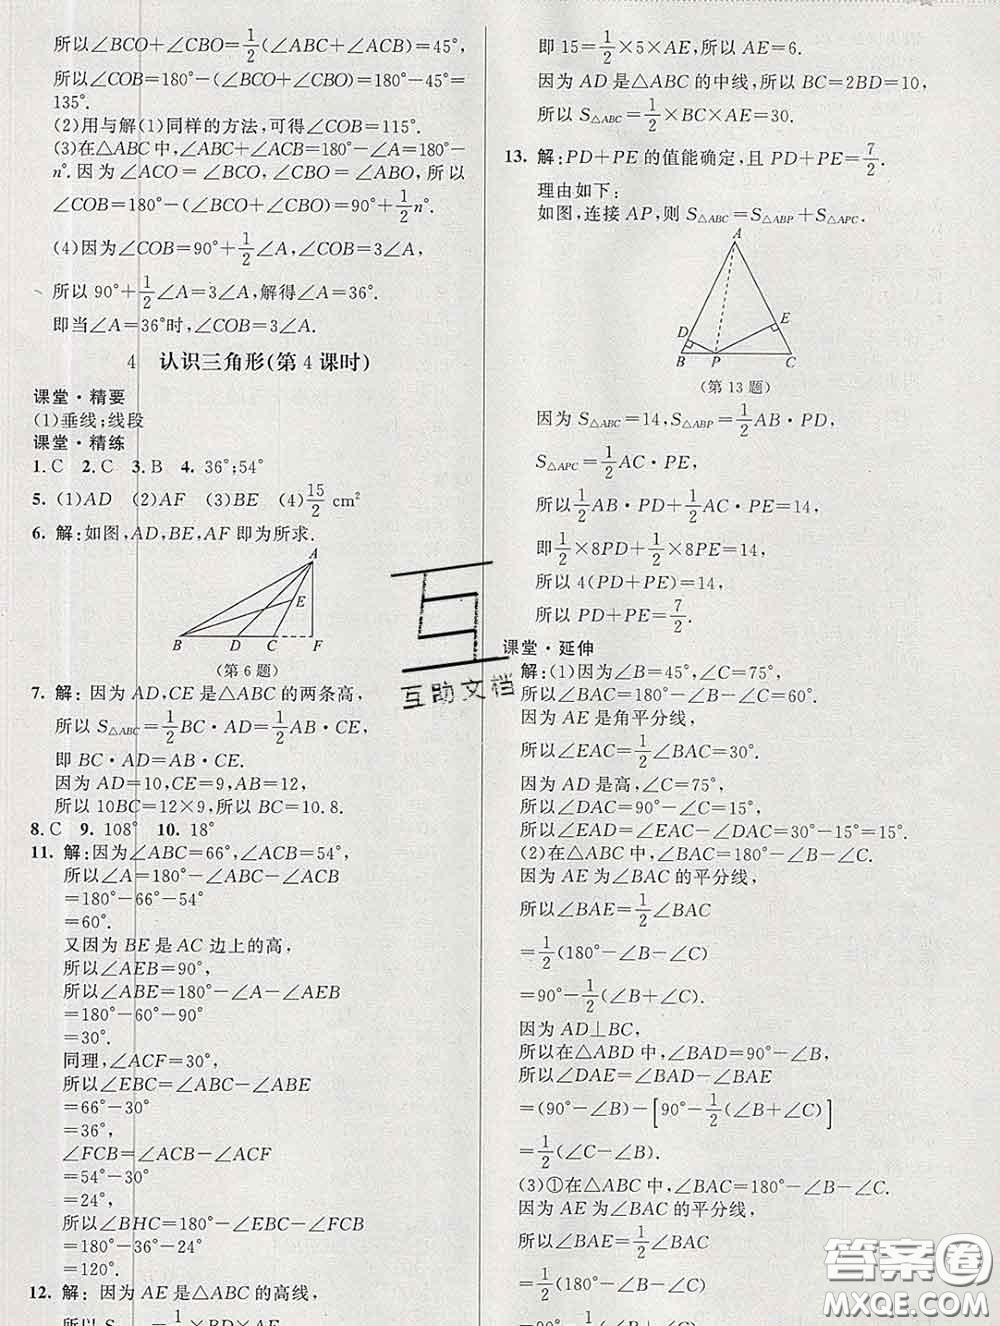 所以∠BCO+∠CBO=1/2(∠ABC+∠ACB)=45°,
所以∠COB=180°-(∠BCO+∠CBO)=180°-45°=
135°.
(2)用与解(1)同样的方法,可得∠COB=115°.
(3)在△ABC中,∠ABC+∠ACB=180°-∠A=180°-
n°.因为∠ACO=∠BCO,∠CBO=∠ABO,所以
∠COB=180°-(∠BCO+∠CBO)=90°+1/2n°.
(4)因为∠COB=90°+1/2∠A,∠COB=3∠A,
所以90°+1/2∠A=3∠A,解得∠A=36°.
即当∠A=36°时,∠COB=3∠A.
4 认识三角形(第4课时)
课堂·精要
(1)垂线;线段
课堂·精练
1.C 2.C 3.B 4.36°;54°
5.(1)AD (2)AF (3)BE (4)15/2 cm²
6.解:如图,AD,BE,AF即为所求.
A
E
B D C F
(第6题)
7.解:因为AD,CE是△ABC的两条高,
所以S△ABC=1/2BC·AD=1/2AB·CE,
即BC·AD=AB·CE.
因为AD=10,CE=9,AB=12,
所以10BC=12×9,所以BC=10.8.
8.C 9.108° 10.18°
11.解:因为∠ABC=66°,∠ACB=54°,
所以∠A=180°-∠ABC-∠ACB
=180°-66°-54°
=60°.
又因为BE是AC边上的高,
所以∠AEB=90°,
所以∠ABE=180°-∠A-∠AEB
=180°-60°-90°
=30°.
同理,∠ACF=30°,
所以∠EBC=∠ABC-∠ABE
=66°-30°
=36°,
∠FCB=∠ACB-∠ACF
=54°-30°
=24°,
所以∠BHC=180°-∠EBC-∠FCB
=180°-36°-24°
=120°.
12.解:因为AE是△ABC的高线,
即15=1/2×5×AE,所以AE=6.
因为AD是△ABC的中线,所以BC=2BD=10,
所以S△ABC=1/2×BC×AE=30.
13.解:PD+PE的值能确定,且PD+PE=7/2.
理由如下:
如图,连接AP,则S△ABC=S△ABP+S△APC.
A
D E
B P C
(第13题)
因为S△ABC=14,S△ABP=1/2AB·PD,
S△APC=1/2AC·PE,
所以1/2AB·PD+1/2AC·PE=14,
即1/2×8PD+1/2×8PE=14,
所以4(PD+PE)=14,
所以PD+PE=7/2.
课堂·延伸
解:(1)因为∠B=45°,∠C=75°,
所以∠BAC=180°-∠B-∠C=60°.
因为AE是角平分线,
所以∠EAC=1/2∠BAC=30°.
因为AD是高,∠C=75°,
所以∠DAC=90°-∠C=15°,
所以∠EAD=∠EAC-∠DAC=30°-15°=15°.
(2)在△ABC中,∠BAC=180°-∠B-∠C.
因为AE为∠BAC的平分线,
所以∠BAE=1/2∠BAC
=1/2(180°-∠B-∠C)
=90°-1/2(∠B+∠C).
因为AD⊥BC,
所以在△ABD中,∠BAD=90°-∠B,
所以∠DAE=∠BAD-∠BAE
=(90°-∠B)-[90°-1/2(∠B+∠C)]
=1/2(∠C-∠B).
(3)①在△ABC中,∠BAC=180°-∠B-∠C.
因为AE为∠BAC的平分线,
所以∠BAE=1/2∠BAC
=1/2(180°-∠B-∠C)
互助文档
答案圈
MXQE.COM